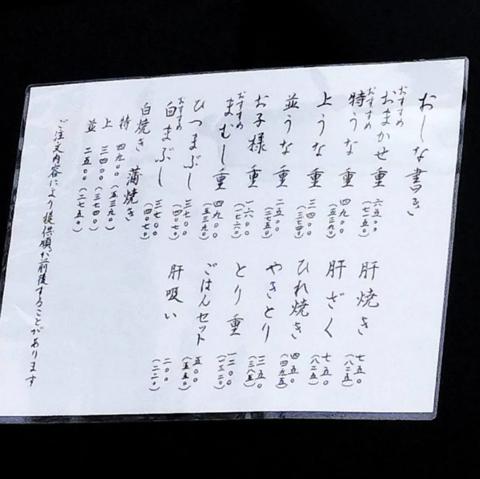 おしな書き
おすすめ
おまかせ重 六五〇〇
(七一五〇)
おすすめ
特うな重 四九〇〇
(五三九〇)
上うな重 三四〇〇
(三七四〇)
並うな重 二五〇〇
(二七五〇)
お子様重 一六〇〇
(一七六〇)
おすすめ
まむし重 四九〇〇
(五三九〇)
ひつまぶし 三七〇〇
(四〇七〇)
おすすめ
白まぶし 三七〇〇
(四〇七〇)
白焼き 蒲焼き
特 四九〇〇(五三九〇)
上 三四〇〇(三七四〇)
並 二五〇〇(二七五〇)
肝焼き 七五〇
(八二五)
肝ざく 七五〇
(八二五)
ひれ焼き 四五〇
(四九五)
やきとり 三五〇
(三八五)
とり重 一二〇〇
(一三二〇)
ごはんセット 五〇〇
(五五〇)
肝吸い 二〇〇
(二二〇)
ご注文内容により提供順が前後することがあります